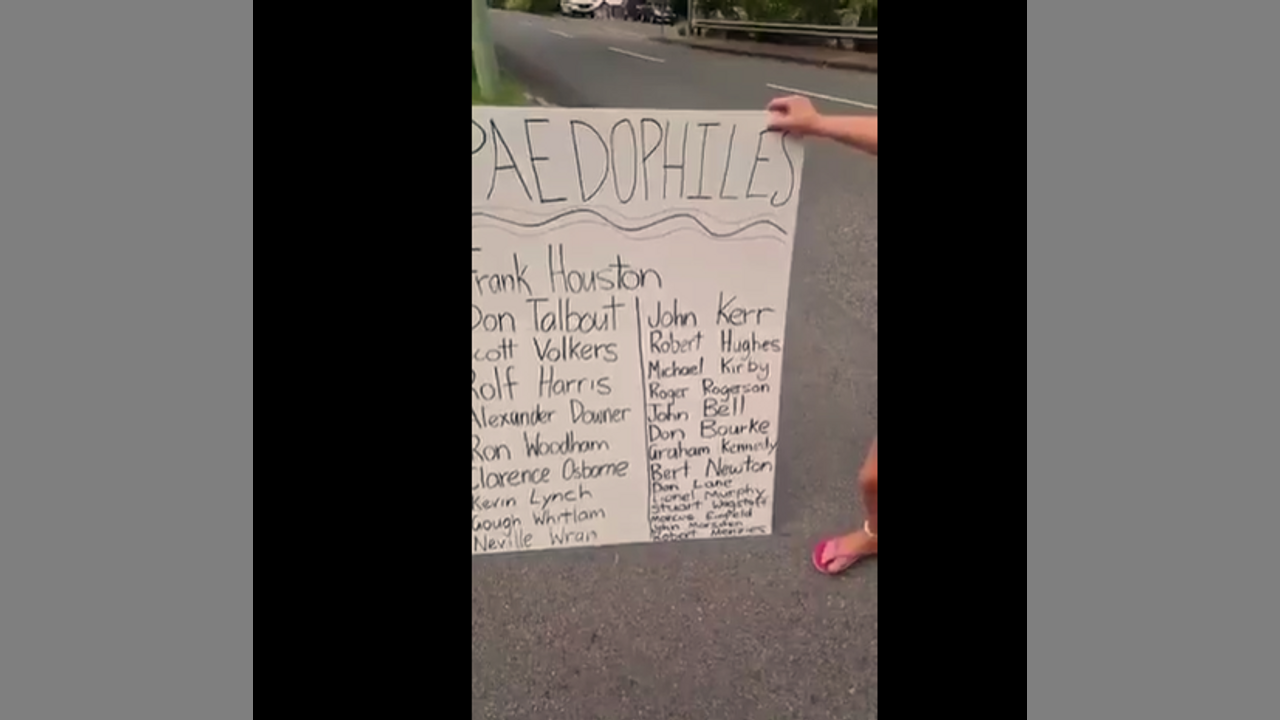 PAEDOPHILES
Frank Houston
Don Talbout
cott Volkers
Rolf Harris
Alexander Downer
Ron Woodham
Clarence Osborne
Kevin Lynch
Gough Whitlam
Neville Wran
John Kerr
Robert Hughes
Michael Kirby
Roger Rogerson
John Bell
Don Bourke
Graham Kennedy
Bert Newton
Don Lane
Lionel Murphy
Stuart Wagstaff
Marcus
John Marsden
Robert Menzies